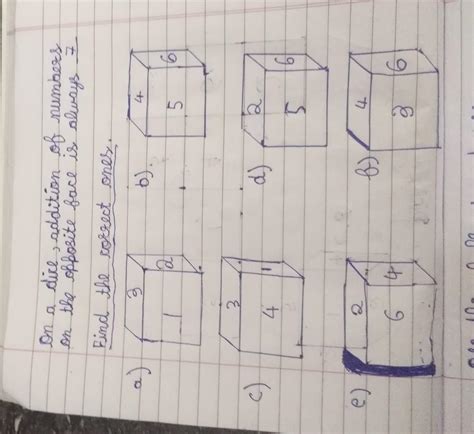 On a dice, addition of numbers
on the opposite face is always 7
Find the correct ones.
a) 3
1 2
b). 4
5 6
c) 3
4 1
d) 2
5 6
e) 2
6 4
f) 4
3 6